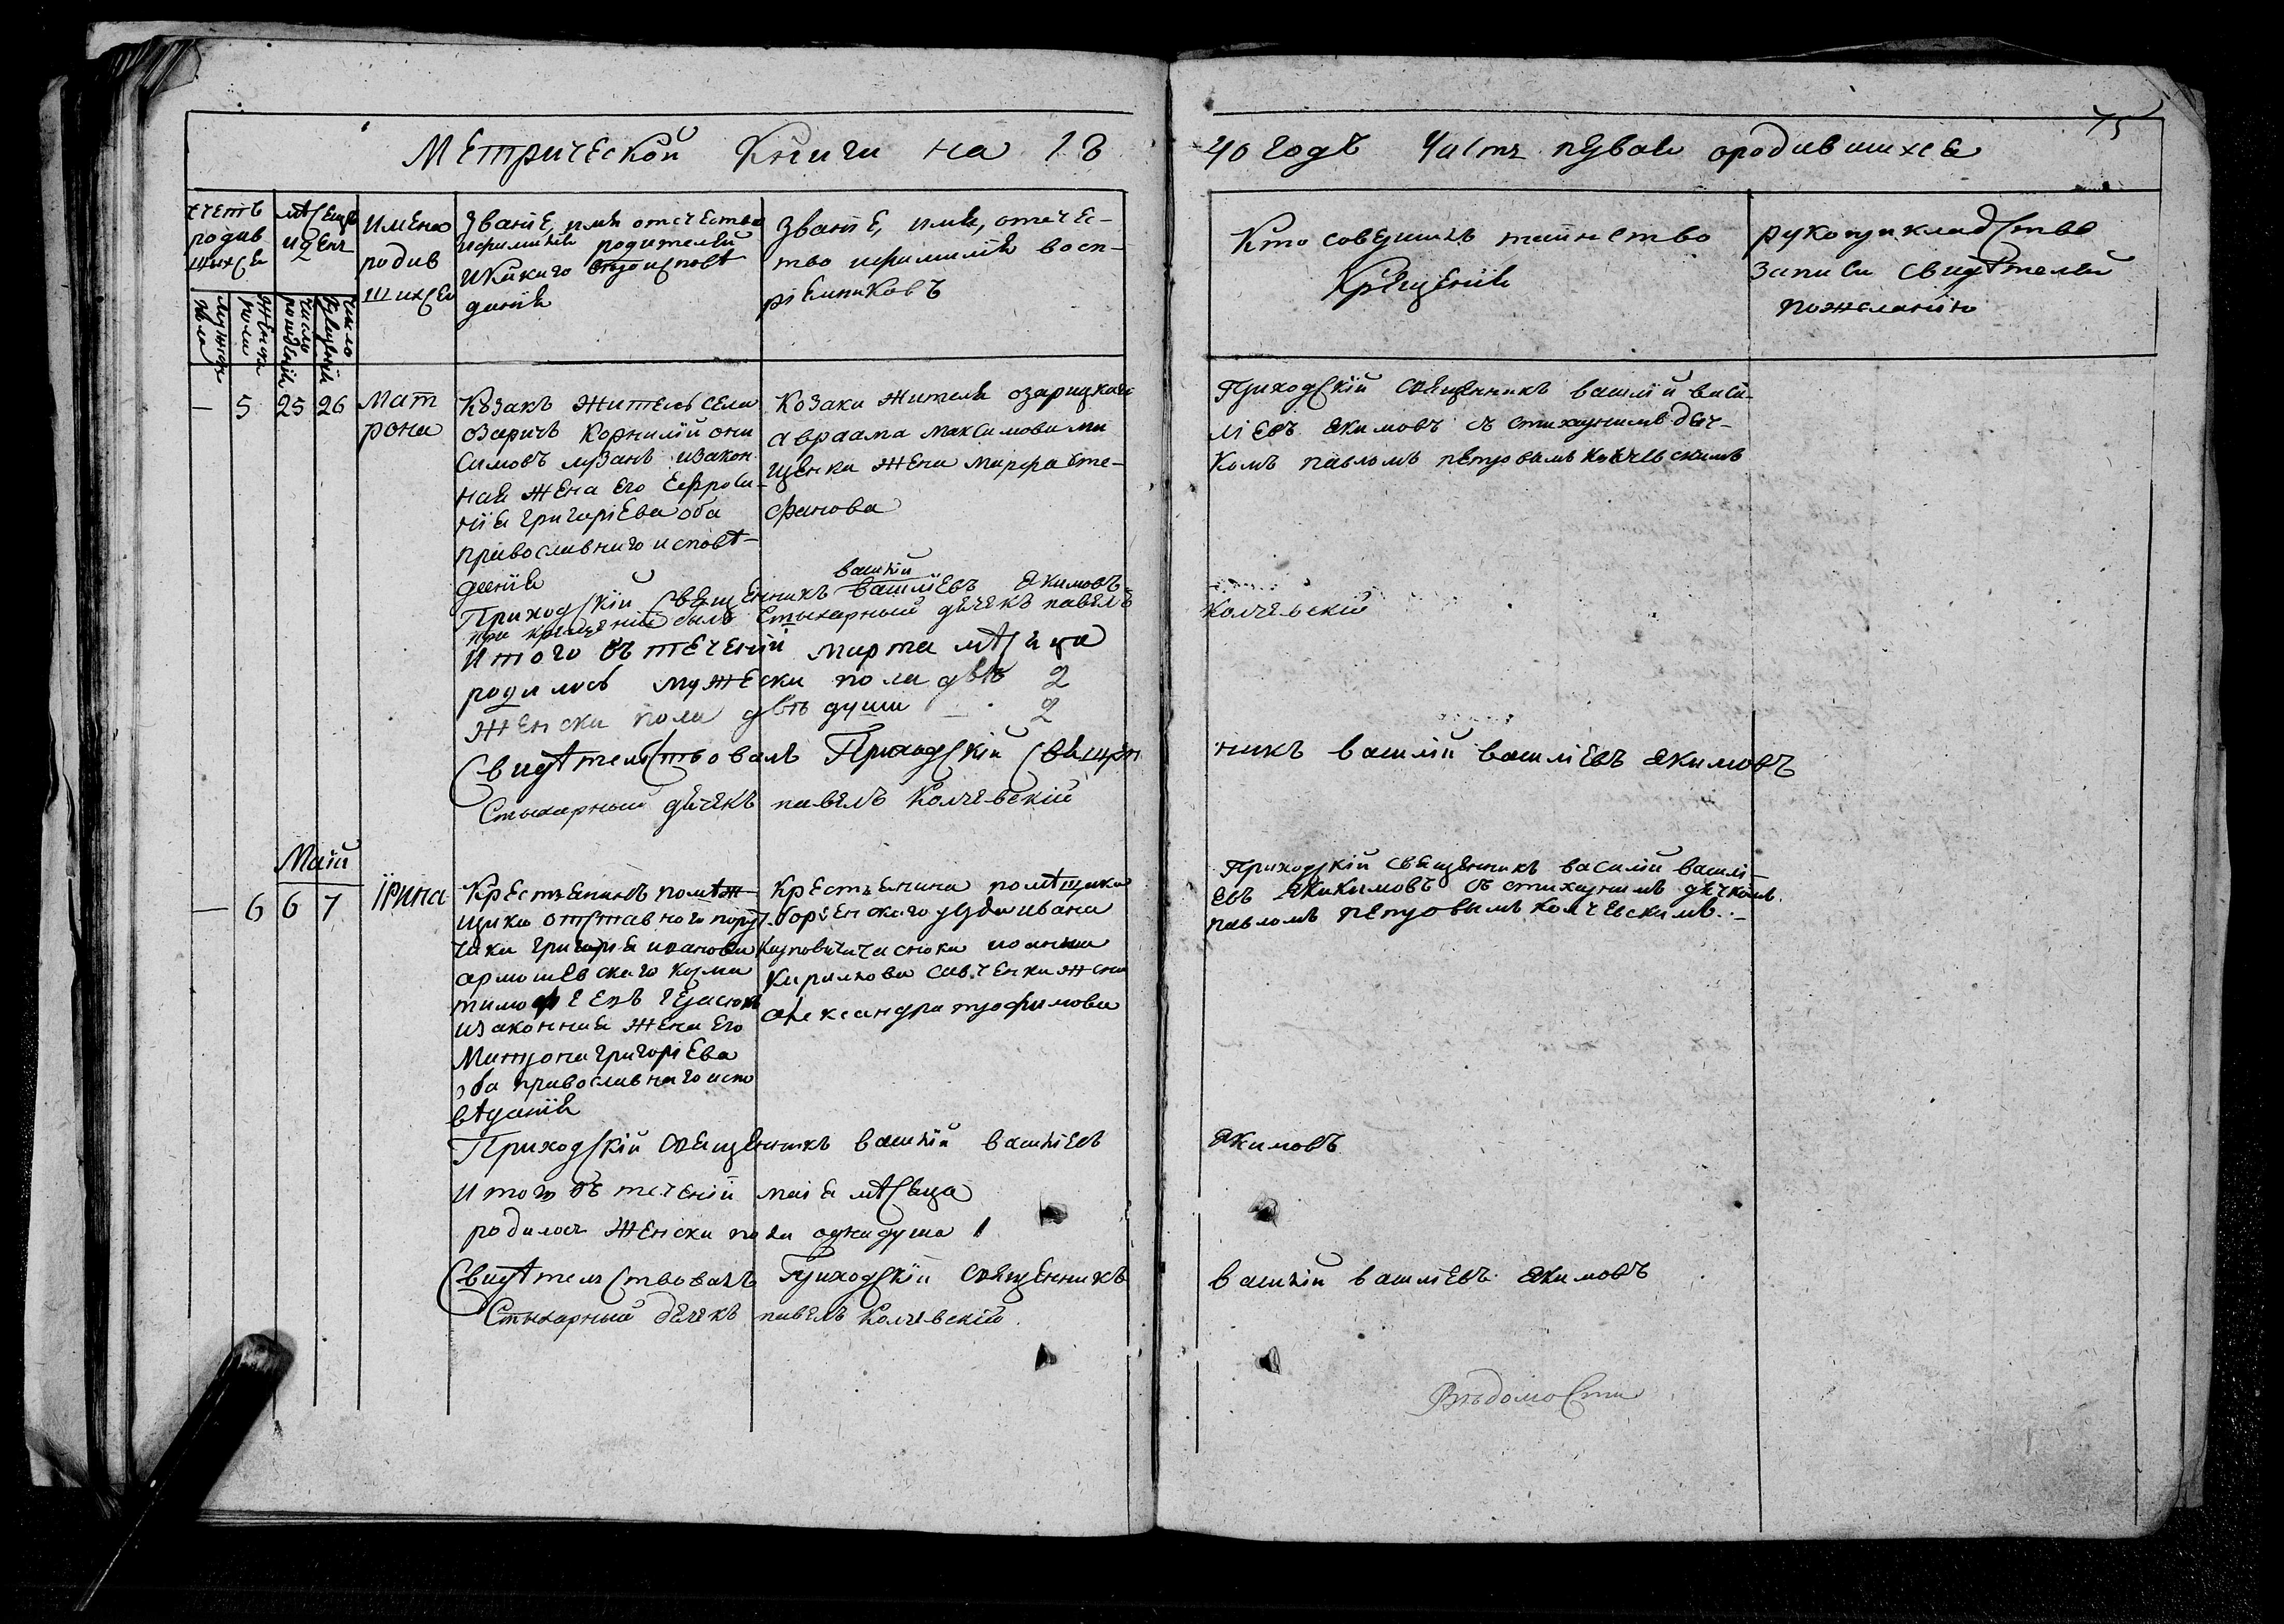 75
Метрической Книги на 18
40 годъ Часть первая ородившихся
счетъ родив шихся
Мѣсецъ и день
Имена родив шихся
Званіе, имя отечество ифамилія родителей икакаго вѣроисповѣ данія
Званіе, имя, отечес- тво ифамилія восп- ріемниковъ
Кто совершилъ таинство Крещенія
рукоприкладство записи свидѣтелей пожеланію
мужеска пола
женска пола
число рожденія
число крещенія
— 5 25 26
Мат
рона
Козакъ житель села
озаричъ Корнилій они
симовъ лузанъ изакон
ная жена его Ефроси-
нія григоріева оба
православнаго исповѣ-
данія
Козака жителя озарицкаго
авраама максимова ми
щенка жена марфа сте-
фанова
Приходскій священникъ василій васи-
ліевъ якимовъ съ стихарнымъ дяч-
комъ павломъ петровымъ Колчевскимъ
василій
Приходскій священникъ василіевъ якимовъ
при крещеніи былъ Стыхарный дячекъ павелъ Колчевскій
Итого въ теченіи марта мѣсяца
родилось мужеска пола двѣ 2
женска пола двѣ души 2
Свидѣтельствовалъ Приходскій священ никъ василій василіевъ якимовъ
Стыхарный дячекъ павелъ Колчевскій
Маій
— 6 6 7
Ірина
Крестьянинъ помѣ-
щика отставнаго пору
чика григорія иванова
армашевскаго кузма
тимофеевъ герасюкъ
изаконная жена его
Матрона григоріева
оба православнаго испо
вѣданія
Крестьянина помѣщика
борзенскаго уѣзда ивана
Кириллова савченка жена
александра трофимова
Приходскій священникъ василій василі-
евъ якимовъ съ стихарнымъ дячкомъ
павломъ петровымъ колчевскимъ.
Приходскій священникъ василій василіевъ якимовъ
итого въ теченіи маія мѣсяца
родилось женска пола одна душа 1
Свидѣтельствовалъ Приходскій священникъ василій василіевъ якимовъ
Стыхарный дячекъ павелъ Колчевскій
Вѣдомости